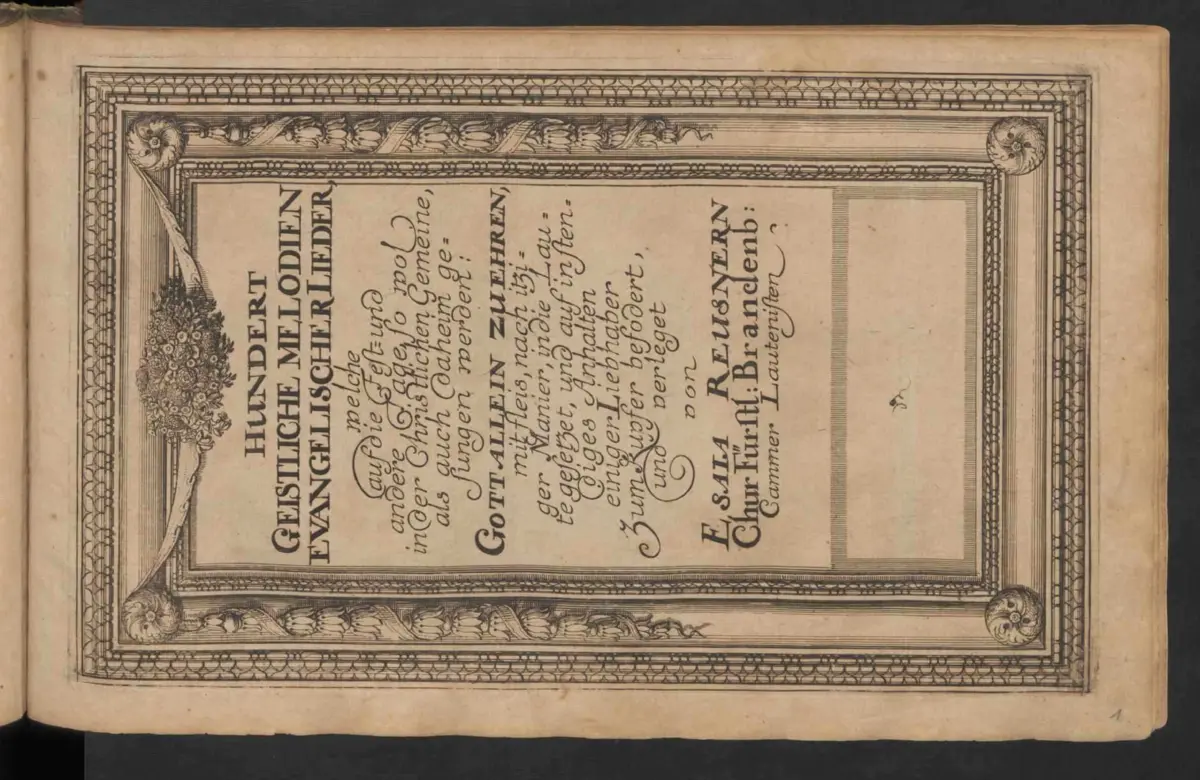 HUNDERT
GEISTLICHE MELODIEN
EVANGELISCHER LIEDER,
welche
auf die Fest- und
andere Tage, so wol
in der Christlichen Gemeine,
als auch daheim ge=
sungen werden:
GOTT ALLEIN ZU EHREN,
mit fleis, nach itzi=
ger Manier, in die Lau=
te gesetzet, und auf insten=
diges Anhalten
einiger Liebhaber
Zum Kupfer befodert,
und verleget
von
ESAIA REUSNERN
Chur Fürstl: Brandenb:
Cammer Lautenisten
1